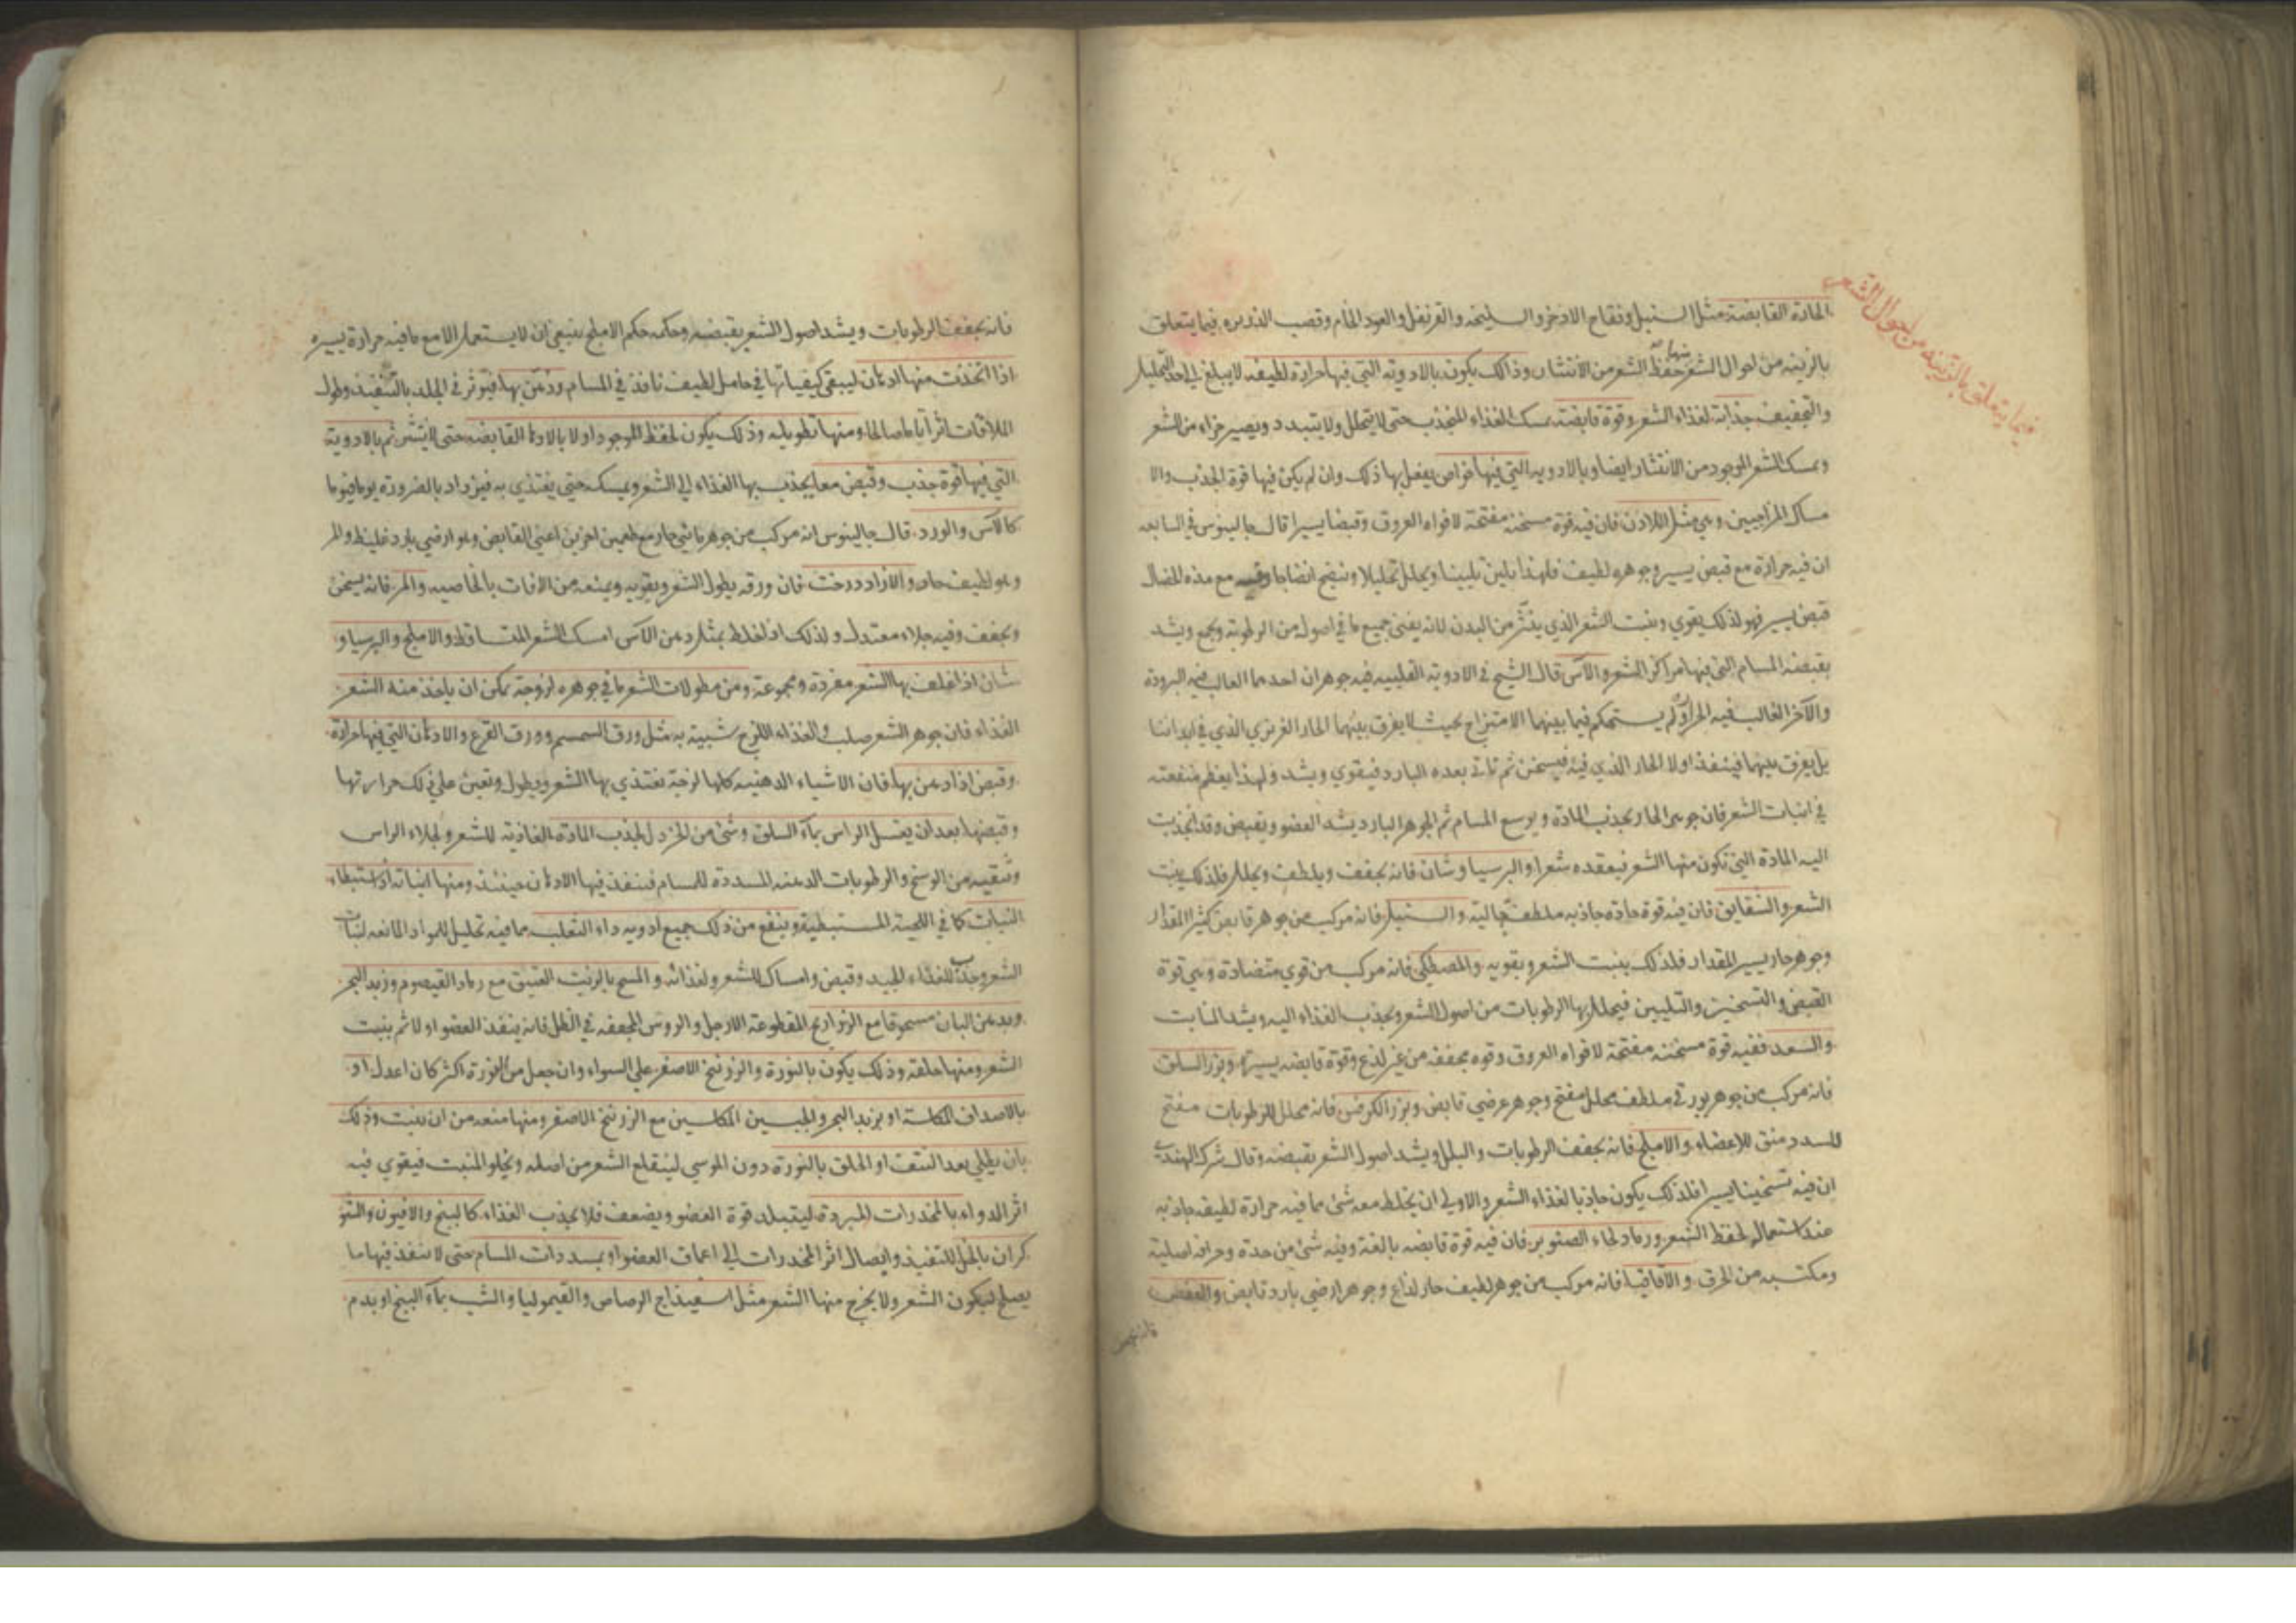 فيما يتعلق بالزينة من احوال الشعر
الحادة القابضة مثل السنبل وفقاح الاذخر والسليخه والقرنفل والعود الخام وقصب الذريره فيما يتعلق
بالزينه من احوال الشعر منها حفظ الشعر من الانتثار وذالك يكون بالادويه التي فيها حرارة لطيفه لا يبلغ الى حد التحليل
والتجفيف جذابة لغذاء الشعر وقوة قابضة يمسك الغذاء المنجذب حتى لا يتحلل ولا يتبدد ويصير جزاء من الشعر
ويمسك الشعر الموجود من الانتثار ايضا وبالادويه التي فيها خواص يفعل بها ذلك وان لم يكن فيها قوة الجذب والا
مساك المزاجيين وهي مثل اللاذن فان فيه قوة مسخنه مفتحة لافواه العروق وقبضا يسيرا قال جالينوس في السابعه
ان فيه حرارة مع قبض يسير وجوهره لطيف فلهذا يلين تليينا ويحلل تحليلا وينضج انضاجا وفيه مع هذه الخصال
قبض يسير فهو لذلك يقوي وينبت الشعر الذي ينتثر من البدن لانه يفنى جميع ما في اصوله من الرطوبة ويجمع ويشد
بقبضه المسام التي فيها مراكز الشعر والآس قال الشيخ في الادوية القلبيه فيه جوهران احدهما الغالب فيه البرودة
والآخر الغالب فيه الحرارة ولم يستحكم فيما بينهما الامتزاج بحيث لا يفرق بينهما الحار الغريزي الذي في ابداننا
بل يفرق بينهما فينفذ اولا الحار الذي فيه فيسخن ثم تاتي بعده البارد فيقوي ويشد ولهذا يعظم منفعته
في انبات الشعر فان جوهره الحار يجذب المادة ويوسع المسام ثم الجوهر البارد يشد العضو ويقبض وقد انجذبت
اليه المادة التي تكون منها الشعر فيعقده شعرا والبرسياوشان فانه يجفف ويلطف ويحلل فلذلك ينبت
الشعر والشقايق فان فيه قوة حادة جاذبه ملطفة جالية والسنبل فانه مركب من جوهر قابض كثير المقدار
وجوهر حار يسير المقدار فلذلك ينبت الشعر ويقويه والمصطكى فانه مركب من قوي متضادة وهي قوة
القبض والتسخين والتليين فيحلل بها الرطوبات من اصول الشعر ويجذب الغذاء اليه ويشد المنابت
والسعد ففيه قوة مسخنه مفتحة لافواه العروق وقوه مجففه من غير لذع وقوة قابضه يسيرة وبزر السلق
فانه مركب من جوهر بورقي ملطف محلل مفتح وجوهر عرضي قابض وبزر الكرفس فانه محلل للرطوبات مفتح
للسدد منق للاعضاء والاملج فانه يجفف الرطوبات والبلل ويشد اصول الشعر بقبضه وقال شرك الهندي
ان فيه تسخينا يسيرا فلذلك يكون جاذبا لغذاء الشعر والاولى ان يخلط معه شئ مما فيه حرارة لطيفه جاذبه
عند استعماله لحفظ الشعر ورماد لحاء الصنوبر فان فيه قوة قابضه بالغة وفيه شئ من حدة وحرافه اصلية
ومكتسبه من الحرق والاقاقيا فانه مركب من جوهر لطيف حار لذاع وجوهر ارضي بارد قابض والعفص
فانه يجفف
فانه يجفف الرطوبات ويشد اصول الشعر بقبضه وحكمه حكم الاملج ينبغي ان لا يستعمل الا مع ما فيه حرارة يسيره
اذا اتخذت منها ادهان ليبقى كيفياتها في حامل لطيف نافذ في المسام ودهن بها فيؤثر في الجلد بالتنفيذ وطول
الملاقات اثرا تاما صالحا ومنها تطويله وذلك يكون بحفظ الموجود اولا بالادهان القابضه حتى لا ينتثر ثم بالادوية
التي فيها قوة جذب وقبض معا يجذب بها الغذاء الى الشعر ويمسكه حتى يغتذي به فيزداد بالضرورة يوما فيوما
كالآس والورد قال جالينوس انه مركب من جوهر مائي حار مع طعمين اخرين اعني القابض وهو ارضي بارد غليظ والمر
وهو لطيف حار والازاددرخت فان ورقه يطول الشعر ويقويه ويمنعه من الافات بالخاصيه والمر فانه يسخن
ويجفف وفيه جلاء معتدل ولذلك اذا خلط بمثله دهن الآس امسك الشعر المتساقط والاملج والبرسياو
شان اذا غلف بها الشعر مفردة ومجموعة ومن مطولات الشعر ما في جوهره لزوجة يمكن ان ياخذ منه الشعر
الغذاء فان جوهر الشعر صلب والغذاء اللزج شبيه به مثل ورق السمسم وورق القرع والادهان التي فيها حرارة
وقبض اذا دهن بها فان الاشياء الدهنيه كلها لزجة تغتذي بها الشعر ويطول وتعين على ذلك حرارتها
وقبضها بعد ان يغسل الراس بمآء السلق وشئ من الخردل لجذب المادة الغاذية للشعر ولجلاء الراس
وتنقيه من الوسخ والرطوبات الدهنه المسددة للمسام فينفذ فيها الادهان حينئذ ومنها انباته اذا استبطاء
النبات كما في اللحية المستبطئة وينفع من ذلك جميع ادويه داء الثعلب مما فيه تحليل للمواد المانعه لنبات
الشعر وجذب للغذاء الجيد وقبض وامساك للشعر ولغذائه والمسح بالزيت العتيق مع رماد القيصوم وزبد البحر
وبدهن البان مسحوقا مع الذراريح المقطوعة الارجل والروس المجففه في الظل فانه ينفذ العضو اولا ثم ينبت
الشعر ومنها حلقه وذلك يكون بالنورة والزرنيخ الاصفر على السواء وان جعل من النورة اكثر كان اعدل او
بالاصداف المكلسة او بزبد البحر والجبسين المكلسين مع الزرنيخ الاصفر ومنها منعه من ان ينبت وذلك
بان يطلى بعد النتف او الحلق بالنورة دون الموسي لينقلع الشعر من اصله ويخلو المنبت فيقوي فيه
اثر الدواء بالمخدرات المبردة ليتبلد قوة العضو ويضعف فلا يجذب الغذاء كالبنج والافيون والشو
كران بالخل للتنفيذ وايصال اثر المخدرات الى اعماق العضو او بمسددات المسام حتى لا ينفذ فيها ما
يصلح ليكون الشعر ولا يخرج منها الشعر مثل اسفيذاج الرصاص والقيموليا والشب بمآء البنج او بدم